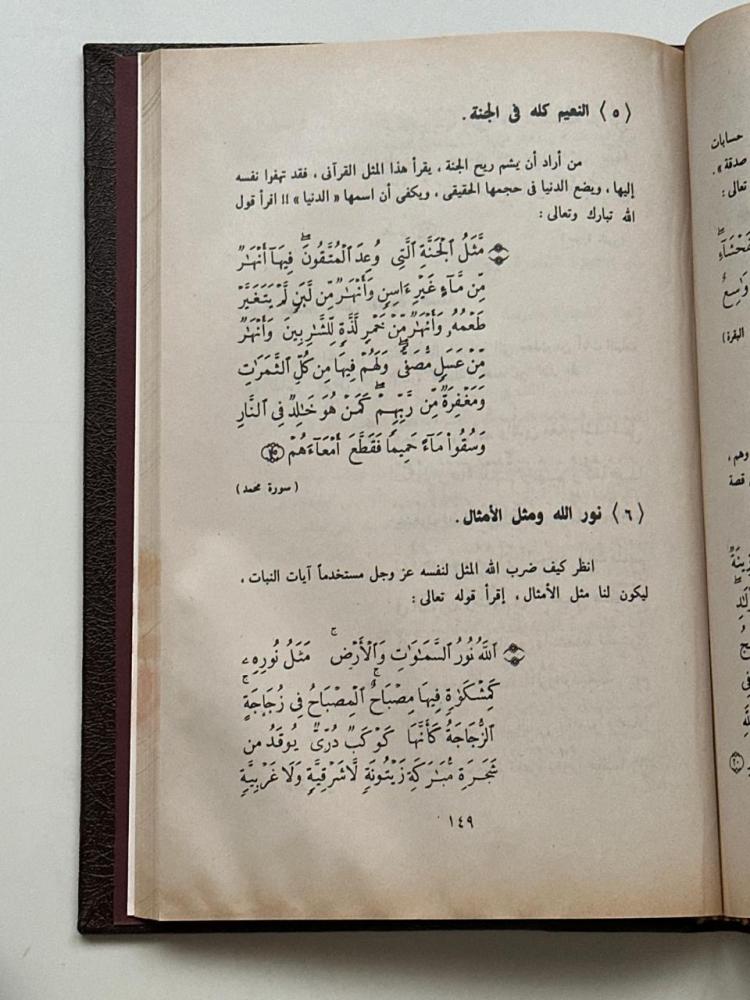 ⟨٥⟩ النعيم كله فى الجنة .
من أراد أن يشم ريح الجنة ، يقرأ هذا المثل القرآنى ، فقد تهفوا نفسه
إليها ، ويضع الدنيا فى حجمها الحقيقى ، ويكفى أن اسمها « الدنيا » !! اقرأ قول
الله تبارك وتعالى :
مَّثَلُ ٱلْجَنَّةِ ٱلَّتِى وُعِدَ ٱلْمُتَّقُونَۖ فِيهَآ أَنْهَٰرٌ
مِّن مَّآءٍ غَيْرِ ءَاسِنٍ وَأَنْهَٰرٌ مِّن لَّبَنٍ لَّمْ يَتَغَيَّرْ
طَعْمُهُۥ وَأَنْهَٰرٌ مِّنْ خَمْرٍ لَّذَّةٍ لِّلشَّٰرِبِينَ وَأَنْهَٰرٌ
مِّنْ عَسَلٍ مُّصَفًّىۖ وَلَهُمْ فِيهَا مِن كُلِّ ٱلثَّمَرَٰتِ
وَمَغْفِرَةٌ مِّن رَّبِّهِمْۖ كَمَنْ هُوَ خَٰلِدٌ فِى ٱلنَّارِ
وَسُقُوا۟ مَآءً حَمِيمًا فَقَطَّعَ أَمْعَآءَهُمْ ⟨١٥⟩
( سورة محمد )
⟨٦⟩ نور الله ومثل الأمثال .
انظر كيف ضرب الله المثل لنفسه عز وجل مستخدماً آيات النبات ،
ليكون لنا مثل الأمثال ، إقرأ قوله تعالى :
ٱللَّهُ نُورُ ٱلسَّمَٰوَٰتِ وَٱلْأَرْضِۚ مَثَلُ نُورِهِۦ
كَمِشْكَوٰةٍ فِيهَا مِصْبَاحٌۖ ٱلْمِصْبَاحُ فِى زُجَاجَةٍۖ
ٱلزُّجَاجَةُ كَأَنَّهَا كَوْكَبٌ دُرِّىٌّ يُوقَدُ مِن
شَجَرَةٍ مُّبَٰرَكَةٍ زَيْتُونَةٍ لَّا شَرْقِيَّةٍ وَلَا غَرْبِيَّةٍ
١٤٩
حسابات
صدقة » .
تعالى :
البقرة )
وهم ،
قصة